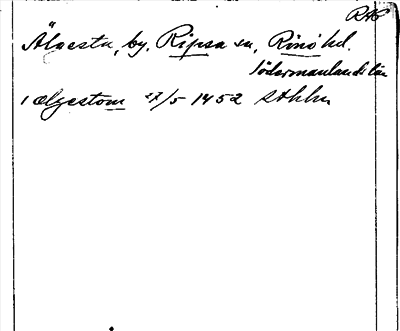 RAP
Älgesta, by, Ripsa sn, Rönö hd.
Södermanlands län
i ælgestom 27/5 1452 Sthlm